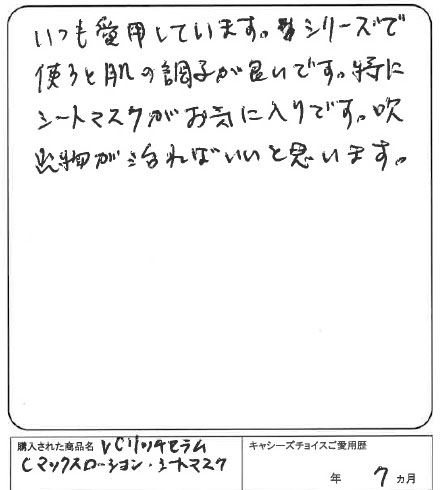 いつも愛用しています。シリーズで
使うと肌の調子が良いです。特に
シートマスクがお気に入りです。吹
出物が治ればいいと思います。
購入された商品名 VCリッチセラム
Cマックスローション・シートマスク
キャシーズチョイスご愛用歴
年 7 ヵ月